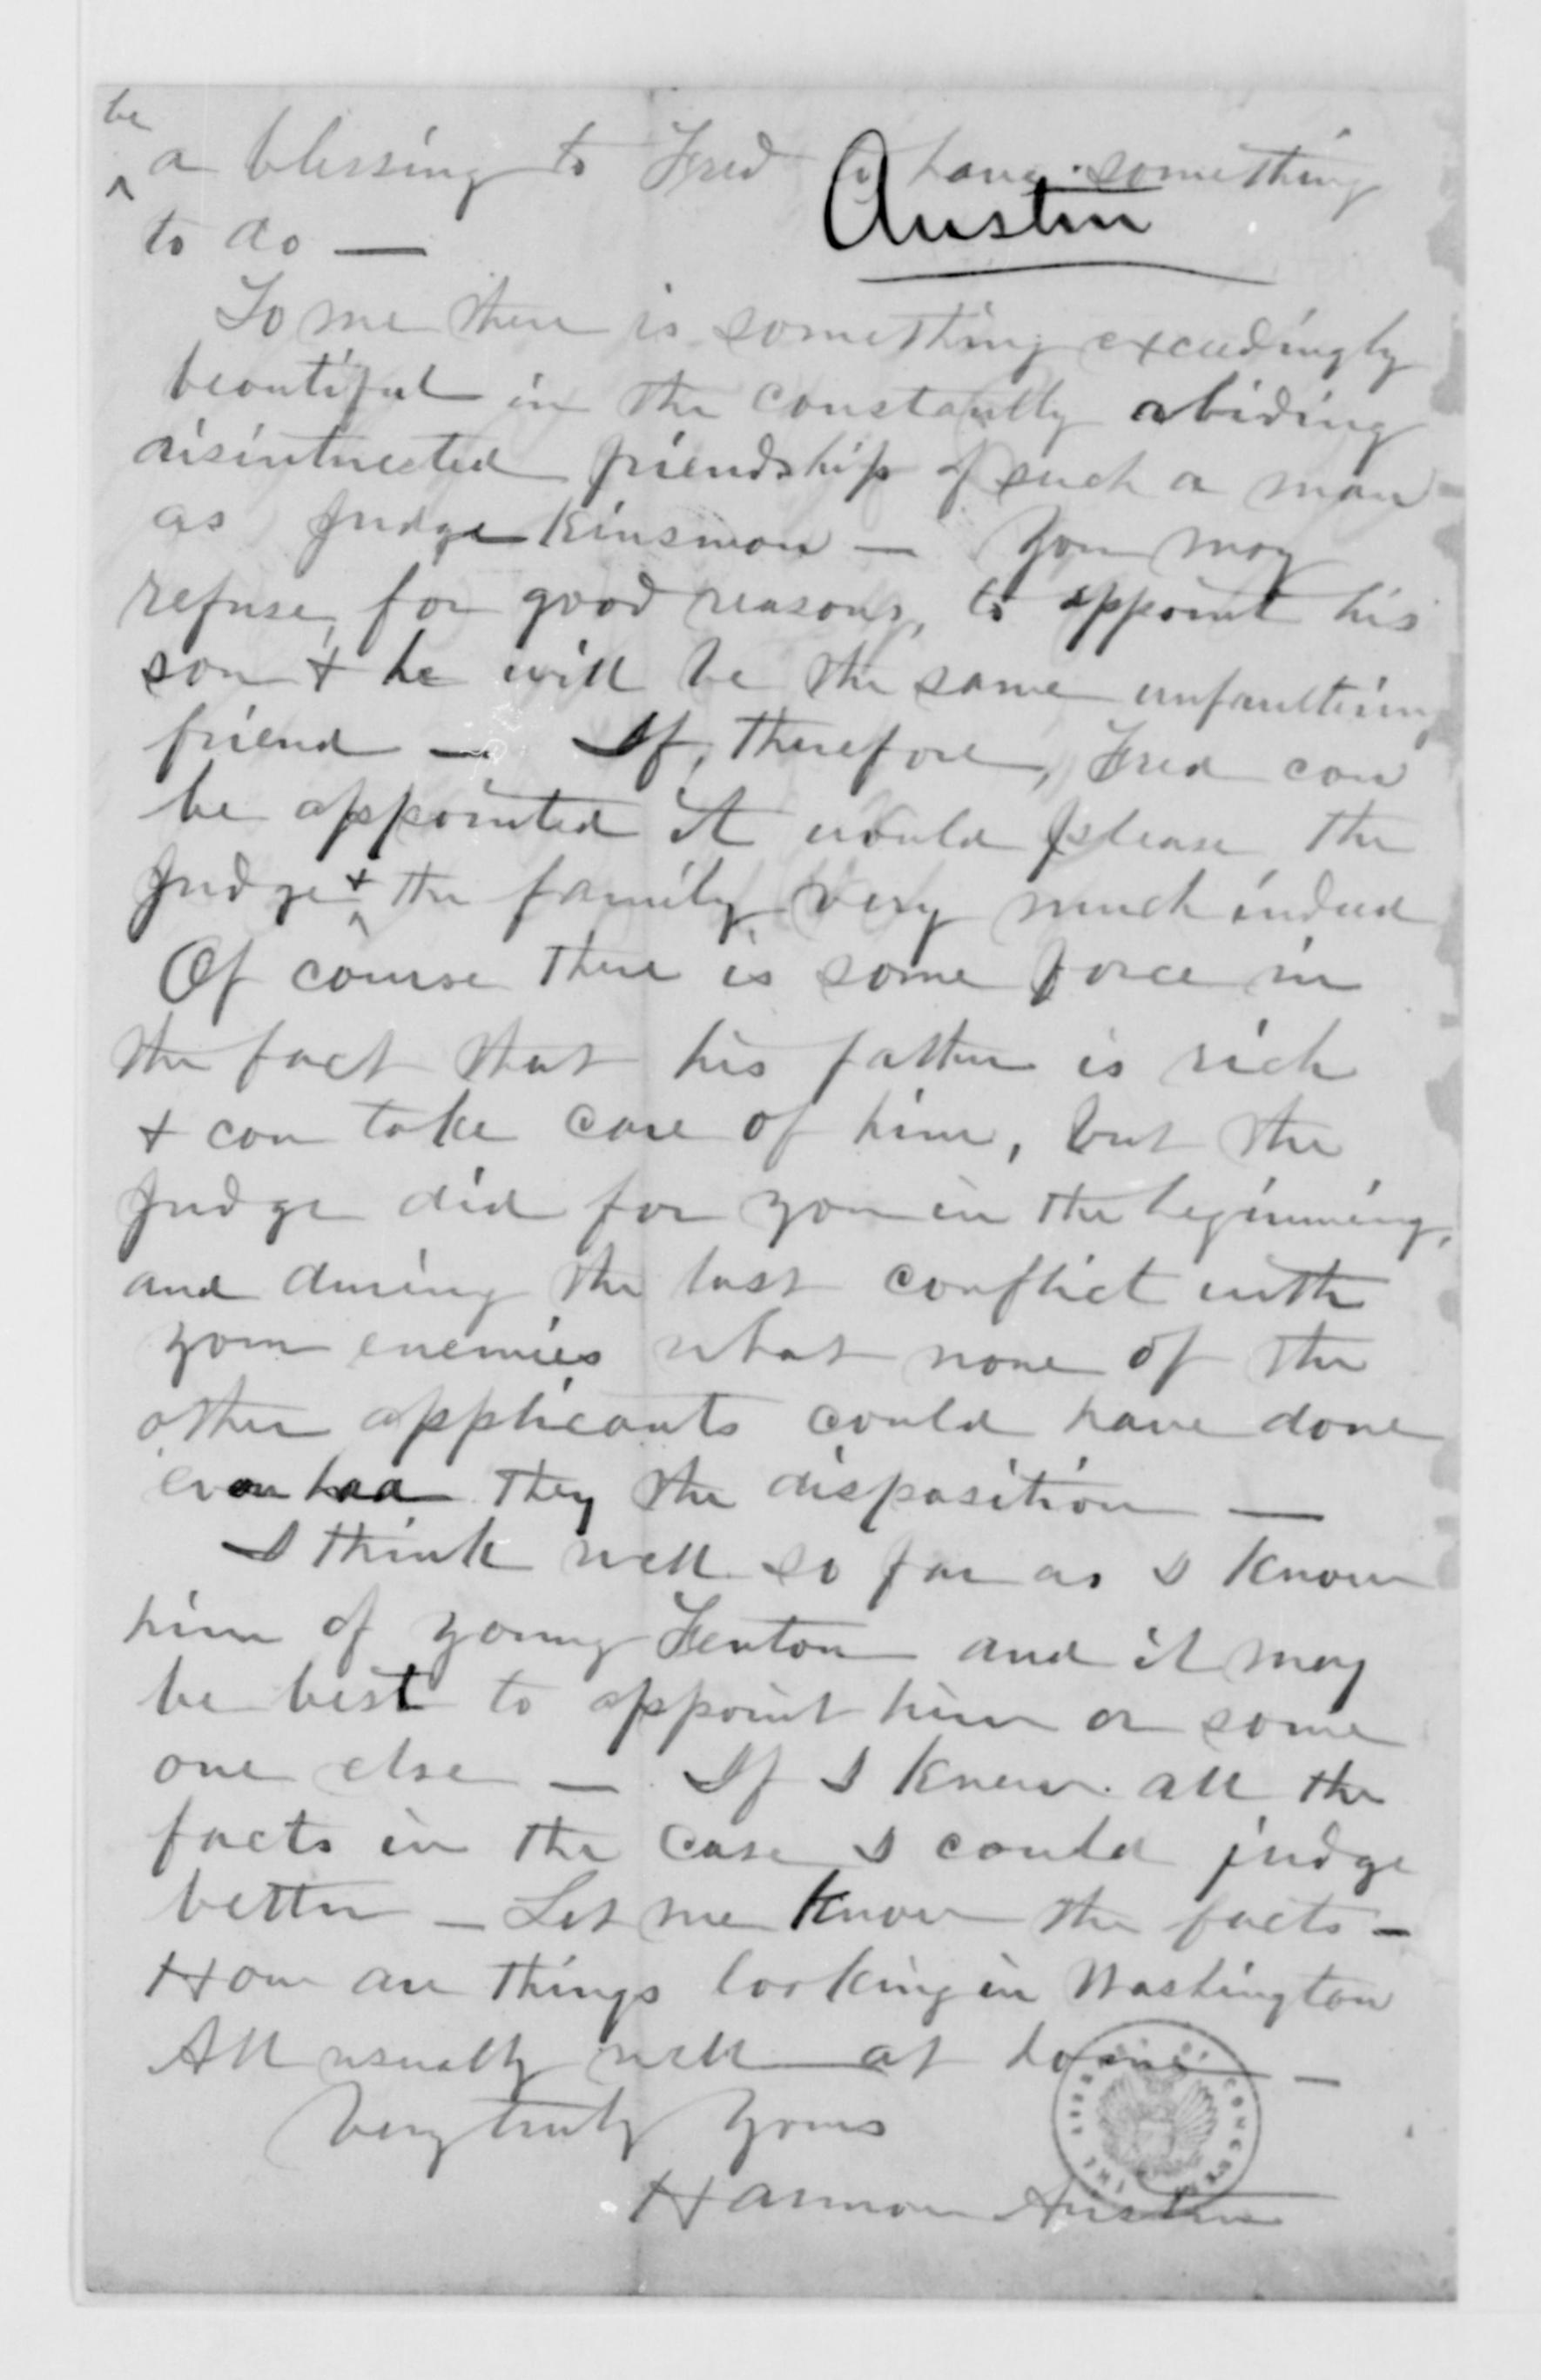 be
a blessing to Fred to have something
Austin
to do —
To me there is something exceedingly
beautiful in the constantly abiding
disinterested friendship of such a man
as Judge Kinsman — You may
refuse, for good reasons, to appoint his
son & he will be the same unfaultering
friend — If, therefore, Fred can
be appointed it would please the
Judge & the family very much indeed
Of course there is some force in
the fact that his father is rich
& can take care of him, but the
Judge did for you in the beginning,
and during the last conflict with
your enemies what none of the
other applicants could have done
even had they the disposition —
I think well so far as I know
him of young Fenton and it may
be best to appoint him or some
one else — If I knew all the
facts in the case I could judge
better — Let me know the facts —
How are things looking in Washington
All usually well at home —
Very truly yours
Harmon Austin